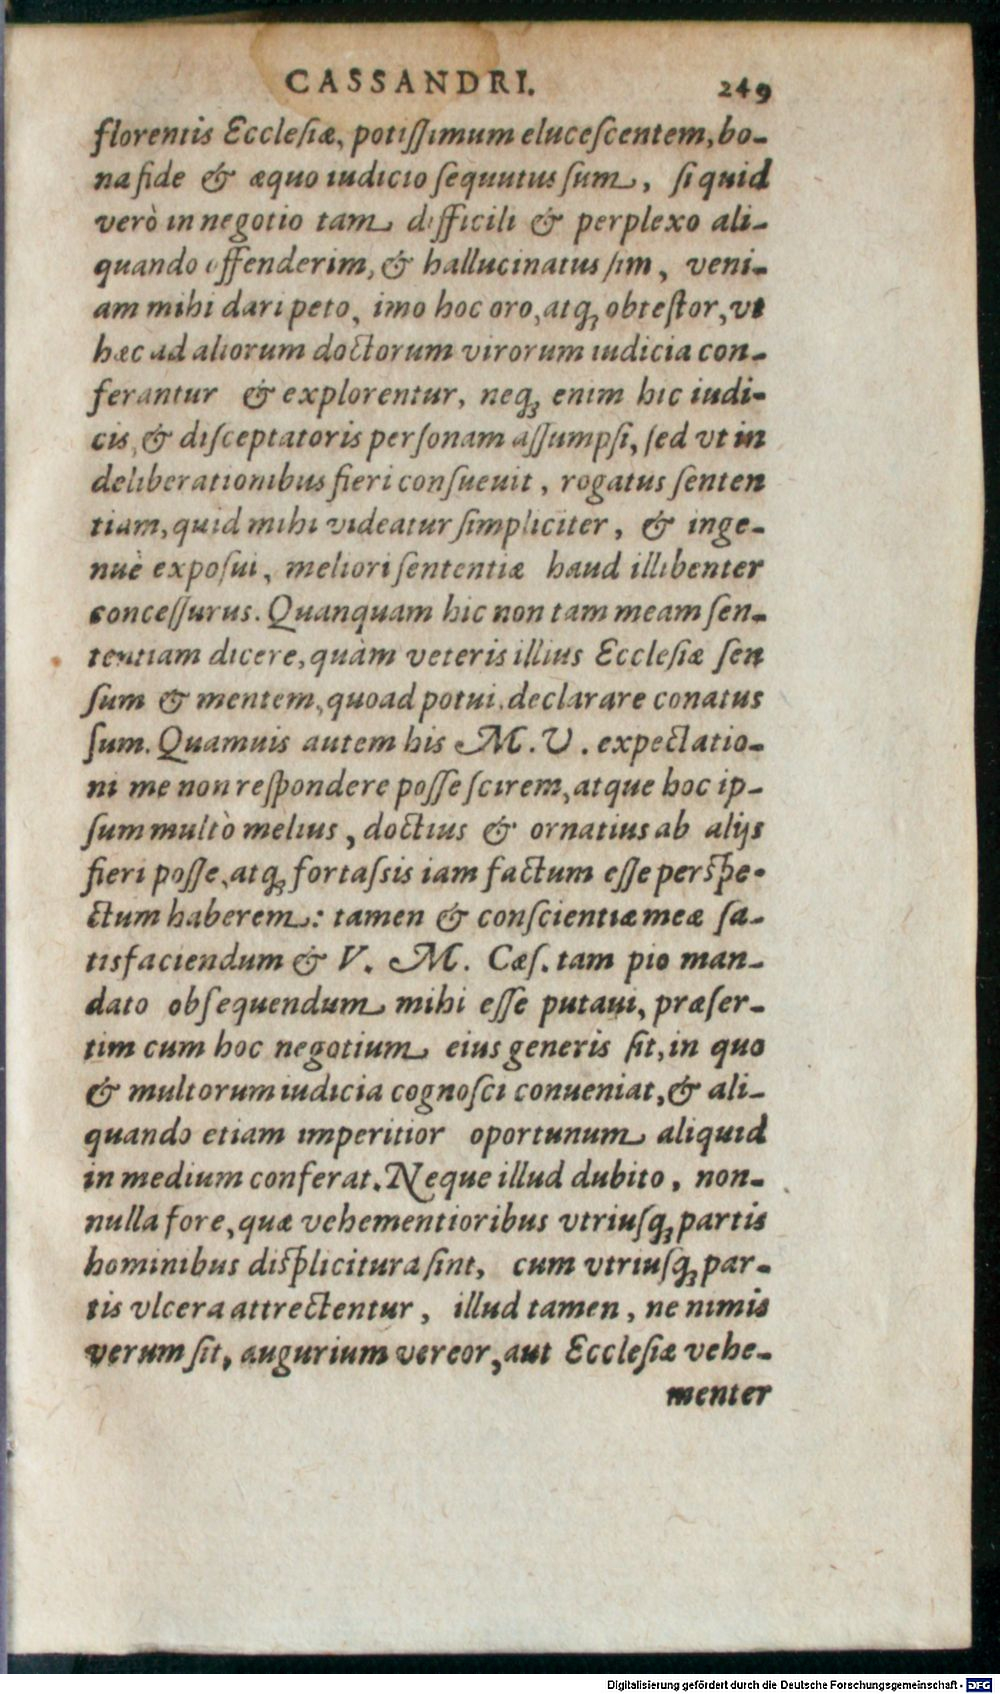 CASSANDRI. 249
florentis Ecclesiæ, potissimum elucescentem, bo-
na fide & æquo iudicio sequutus sum, si quid
verò in negotio tam difficili & perplexo ali-
quando offenderim, & hallucinatus sim, veni-
am mihi dari peto, imo hoc oro, atq; obtestor, vt
hæc ad aliorum doctorum virorum iudicia con-
ferantur & explorentur, neq; enim hic iudi-
cis, & disceptatoris personam assumpsi, sed vt in
deliberationibus fieri consueuit, rogatus senten
tiam, quid mihi videatur simpliciter, & inge-
nuè exposui, meliori sententiæ haud illibenter
concessurus. Quanquam hic non tam meam sen-
tentiam dicere, quàm veteris illius Ecclesiæ sen
sum & mentem, quoad potui, declarare conatus
sum. Quamuis autem his M. V. expectatio-
ni me non respondere posse scirem, atque hoc ip-
sum multò melius, doctius & ornatius ab alijs
fieri posse, atq; fortassis iam factum esse perspe-
ctum haberem: tamen & conscientiæ meæ sa-
tisfaciendum & V. M. Cæs. tam pio man-
dato obsequendum mihi esse putaui, præser-
tim cum hoc negotium eius generis sit, in quo
& multorum iudicia cognosci conueniat, & ali-
quando etiam imperitior oportunum aliquid
in medium conferat. Neque illud dubito, non-
nulla fore, quæ vehementioribus vtriusq; partis
hominibus displicitura sint, cum vtriusq; par-
tis vlcera attrectentur, illud tamen, ne nimis
verum sit, augurium vereor, aut Ecclesiæ vehe-
menter
Digitalisierung gefördert durch die Deutsche Forschungsgemeinschaft - DFG